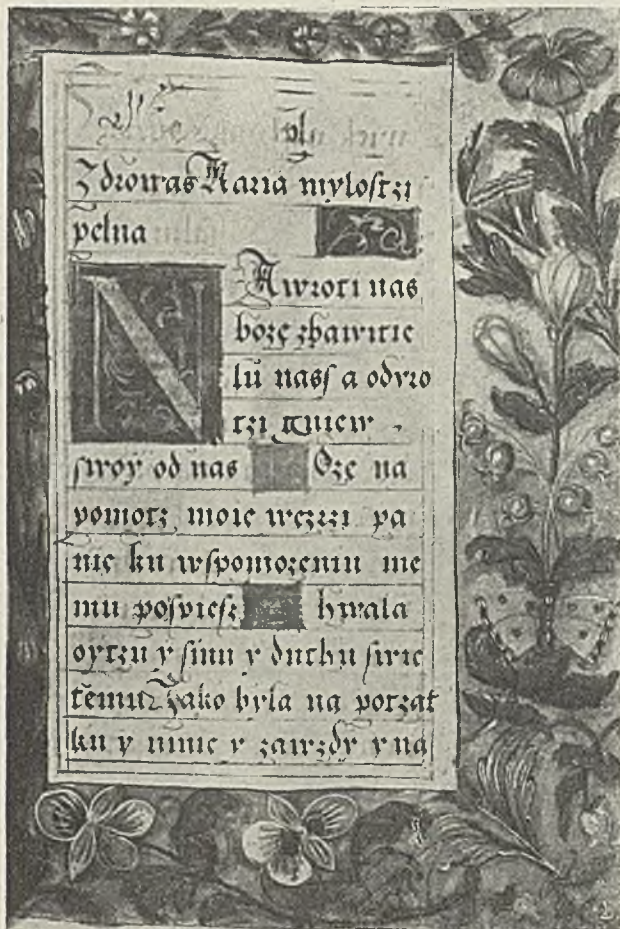 Zdrowas Maria myloſtzi
pelna
NAwroti nas
boze zbawicie
lu naſſ a odwro
tzi gniew
ſwoy od nas Oze na
pomotz moie wezrzi pa
nie ku wſpomozeniu me
mu poſpieſz hwala
oytzu y ſinu y duchu ſwie
temu Jako byla na potzat
ku y ninie y zawzdy y na